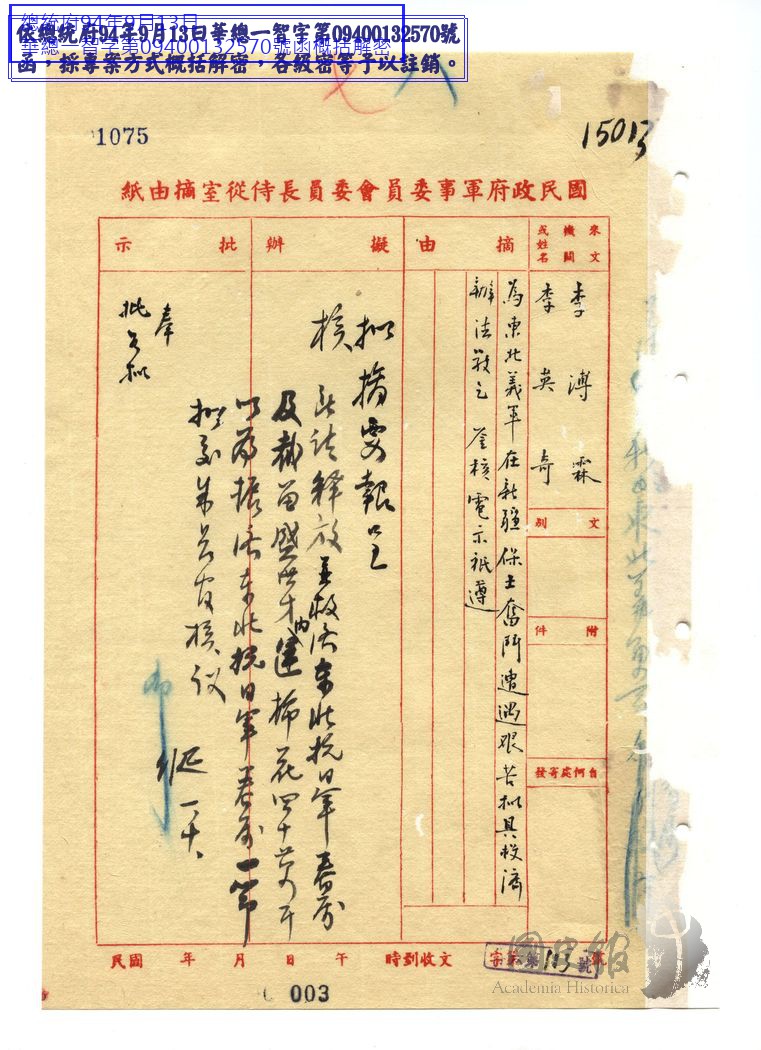 總統府94年9月13日
華總一智字第09400132570號函概括解密
依總統府94年9月13日華總一智字第09400132570號
函，採專案方式概括解密，各級密等予以註銷。
1075
15013
國民政府軍事委員會委員長侍從室摘由紙
來文機關或姓名
李溥霖
李英奇
文別
附件
自何處寄發
摘由
為東北義軍在新疆保土奮鬥遭遇艱苦擬具救濟
辦法敬乞 鑒核電示祗遵
擬辦
擬摘要報呈
核
此請釋放並救濟東北抗日軍眷屬
及截留盛世才內運棉花四十萬斤
以為振濟東北抗日軍眷屬一節
擬交朱長官核議
批示
奉
批如擬
民國 年 月 日 午 時到收文 字第 號
113
003
國史館
Academia Historica